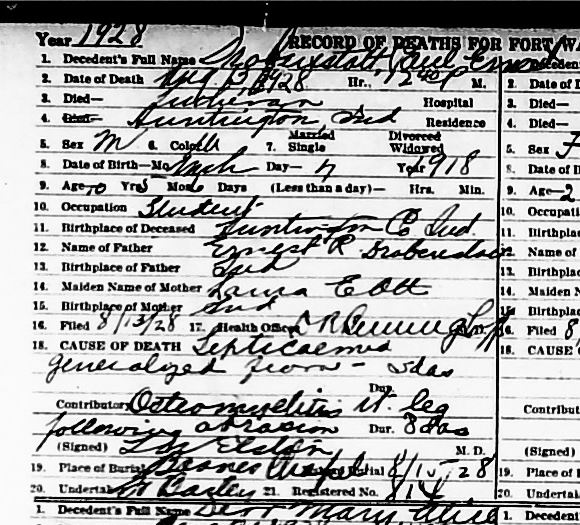 Year 1928 RECORD OF DEATHS FOR FORT WA
1. Decedent's Full Name Paul Ernest
2. Date of Death Aug 13 1928 Hr., 12 40 P M.
3. Died— Lutheran Hospital
4. Died— Huntington Ind Residence
5. Sex M 6. Color W 7. Married Single Divorced Widowed
8. Date of Birth—Mo. Mch Day— 7 Year 1918
9. Age 10 Yrs 5 Mos 6 Days (Less than a day)— Hrs. Min.
10. Occupation Student
11. Birthplace of Deceased Huntington Co Ind.
12. Name of Father Ernest R Drabenstott
13. Birthplace of Father Ind
14. Maiden Name of Mother Laura E Ott
15. Birthplace of Mother Ind
16. Filed 8/13/28 17. Health Officer M.D.
18. CAUSE OF DEATH Septicaemia
generalized from — 5das
Dur.
Contributory Osteomyelitis rt. leg
following abrasion Dur. 8das
(Signed) Elston M. D.
19. Place of Burial Chapel Burial 8/15/28
20. Undertaker Bailey 21. Registered No. 814
1. Decedent's Full Name Mary Alice
2. Date of D
3. Died—
4. Died—
5. Sex F
8. Date of B
9. Age—2
10. Occupati
11. Birthplac
12. Name of
13. Birthplac
14. Maiden N
15. Birthplac
16. Filed 8/
18. CAUSE
Contribut
(Signed)
19. Place of
20. Undertak
1. Decedent